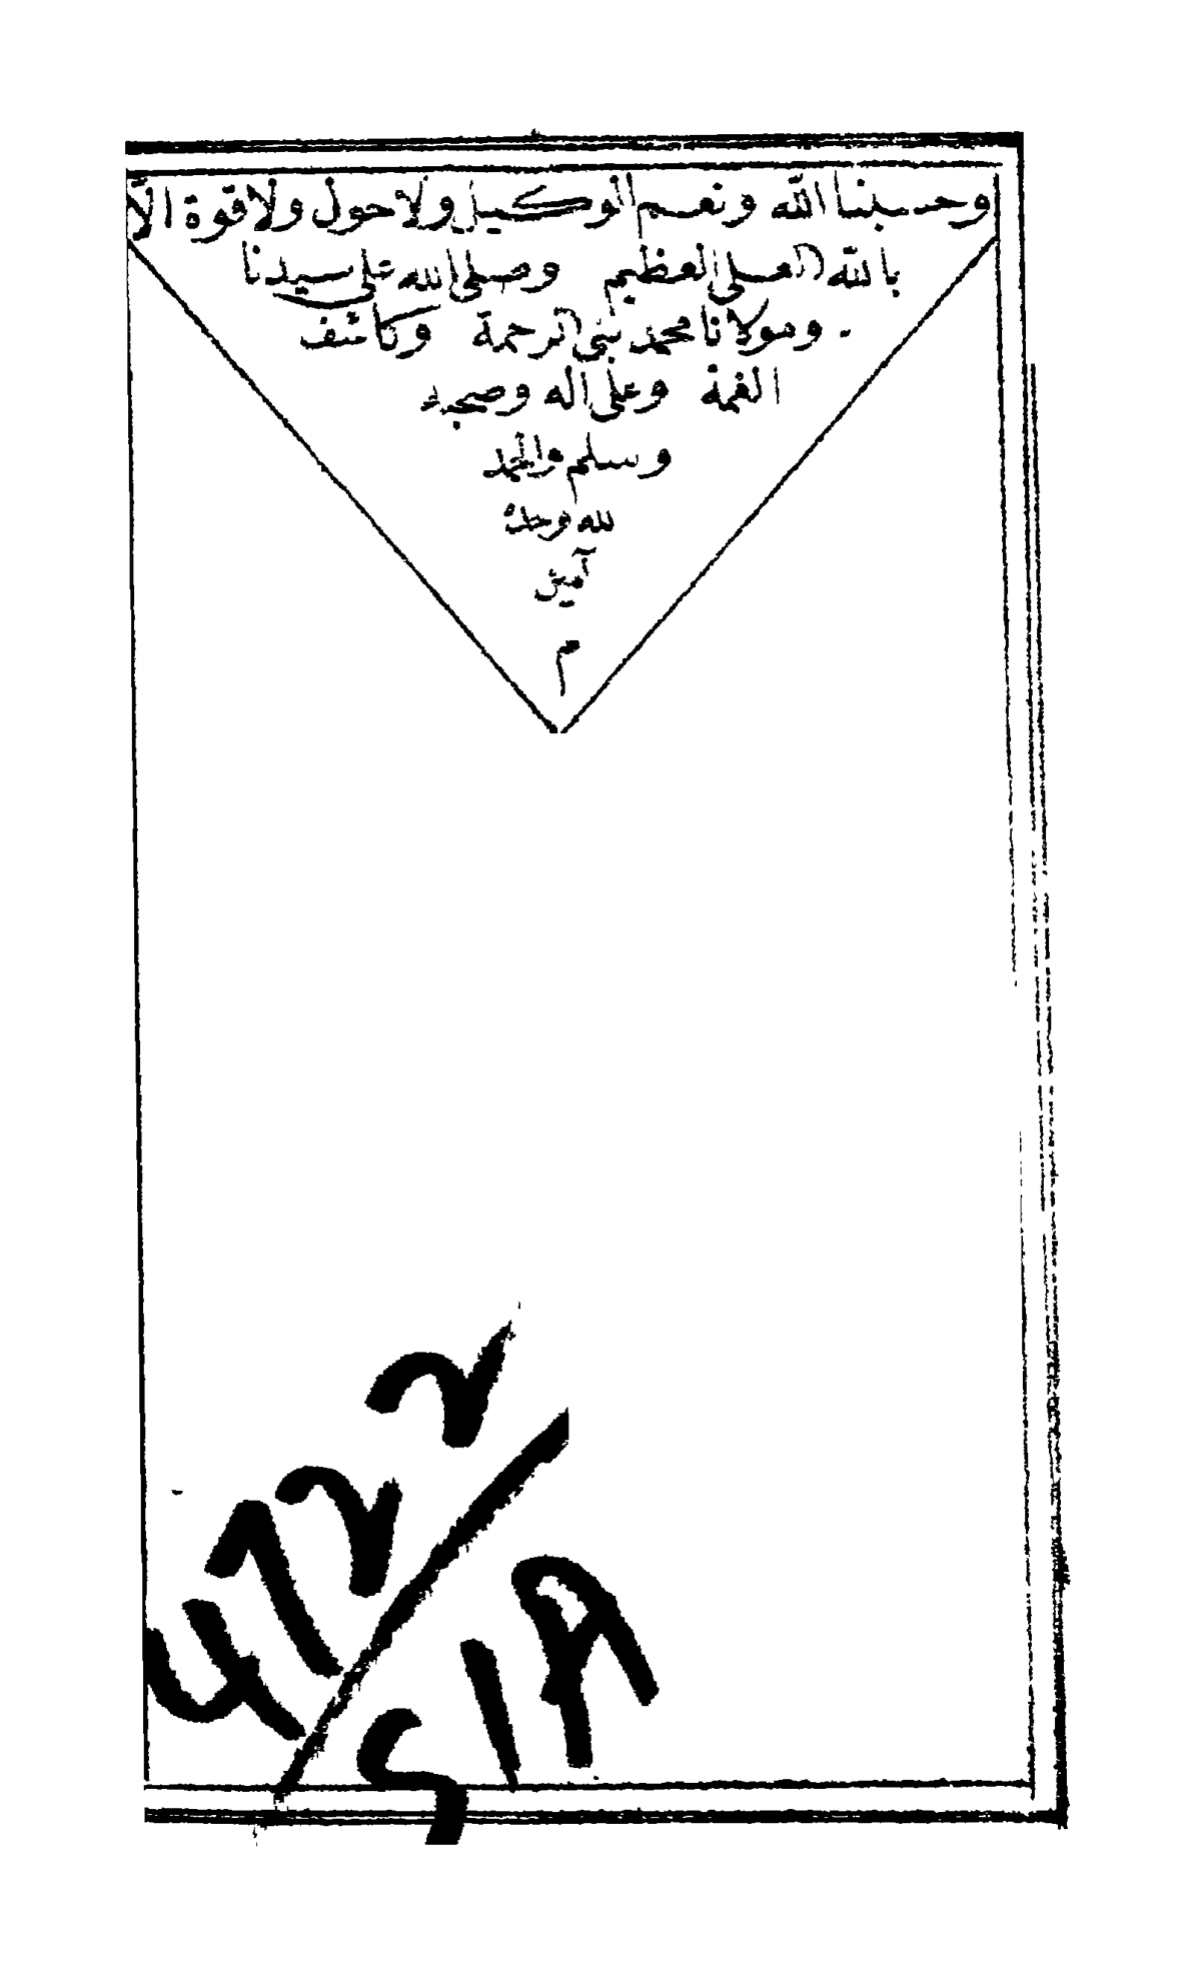 وحسبنا الله ونعم الوكيل ولا حول ولا قوة الا
بالله العلي العظيم وصلى الله على سيدنا
ومولانا محمد نبي الرحمة وكاشف
الغمة وعلى اله وصحبه
وسلم والحمد
لله وحده
آمين
م
4122